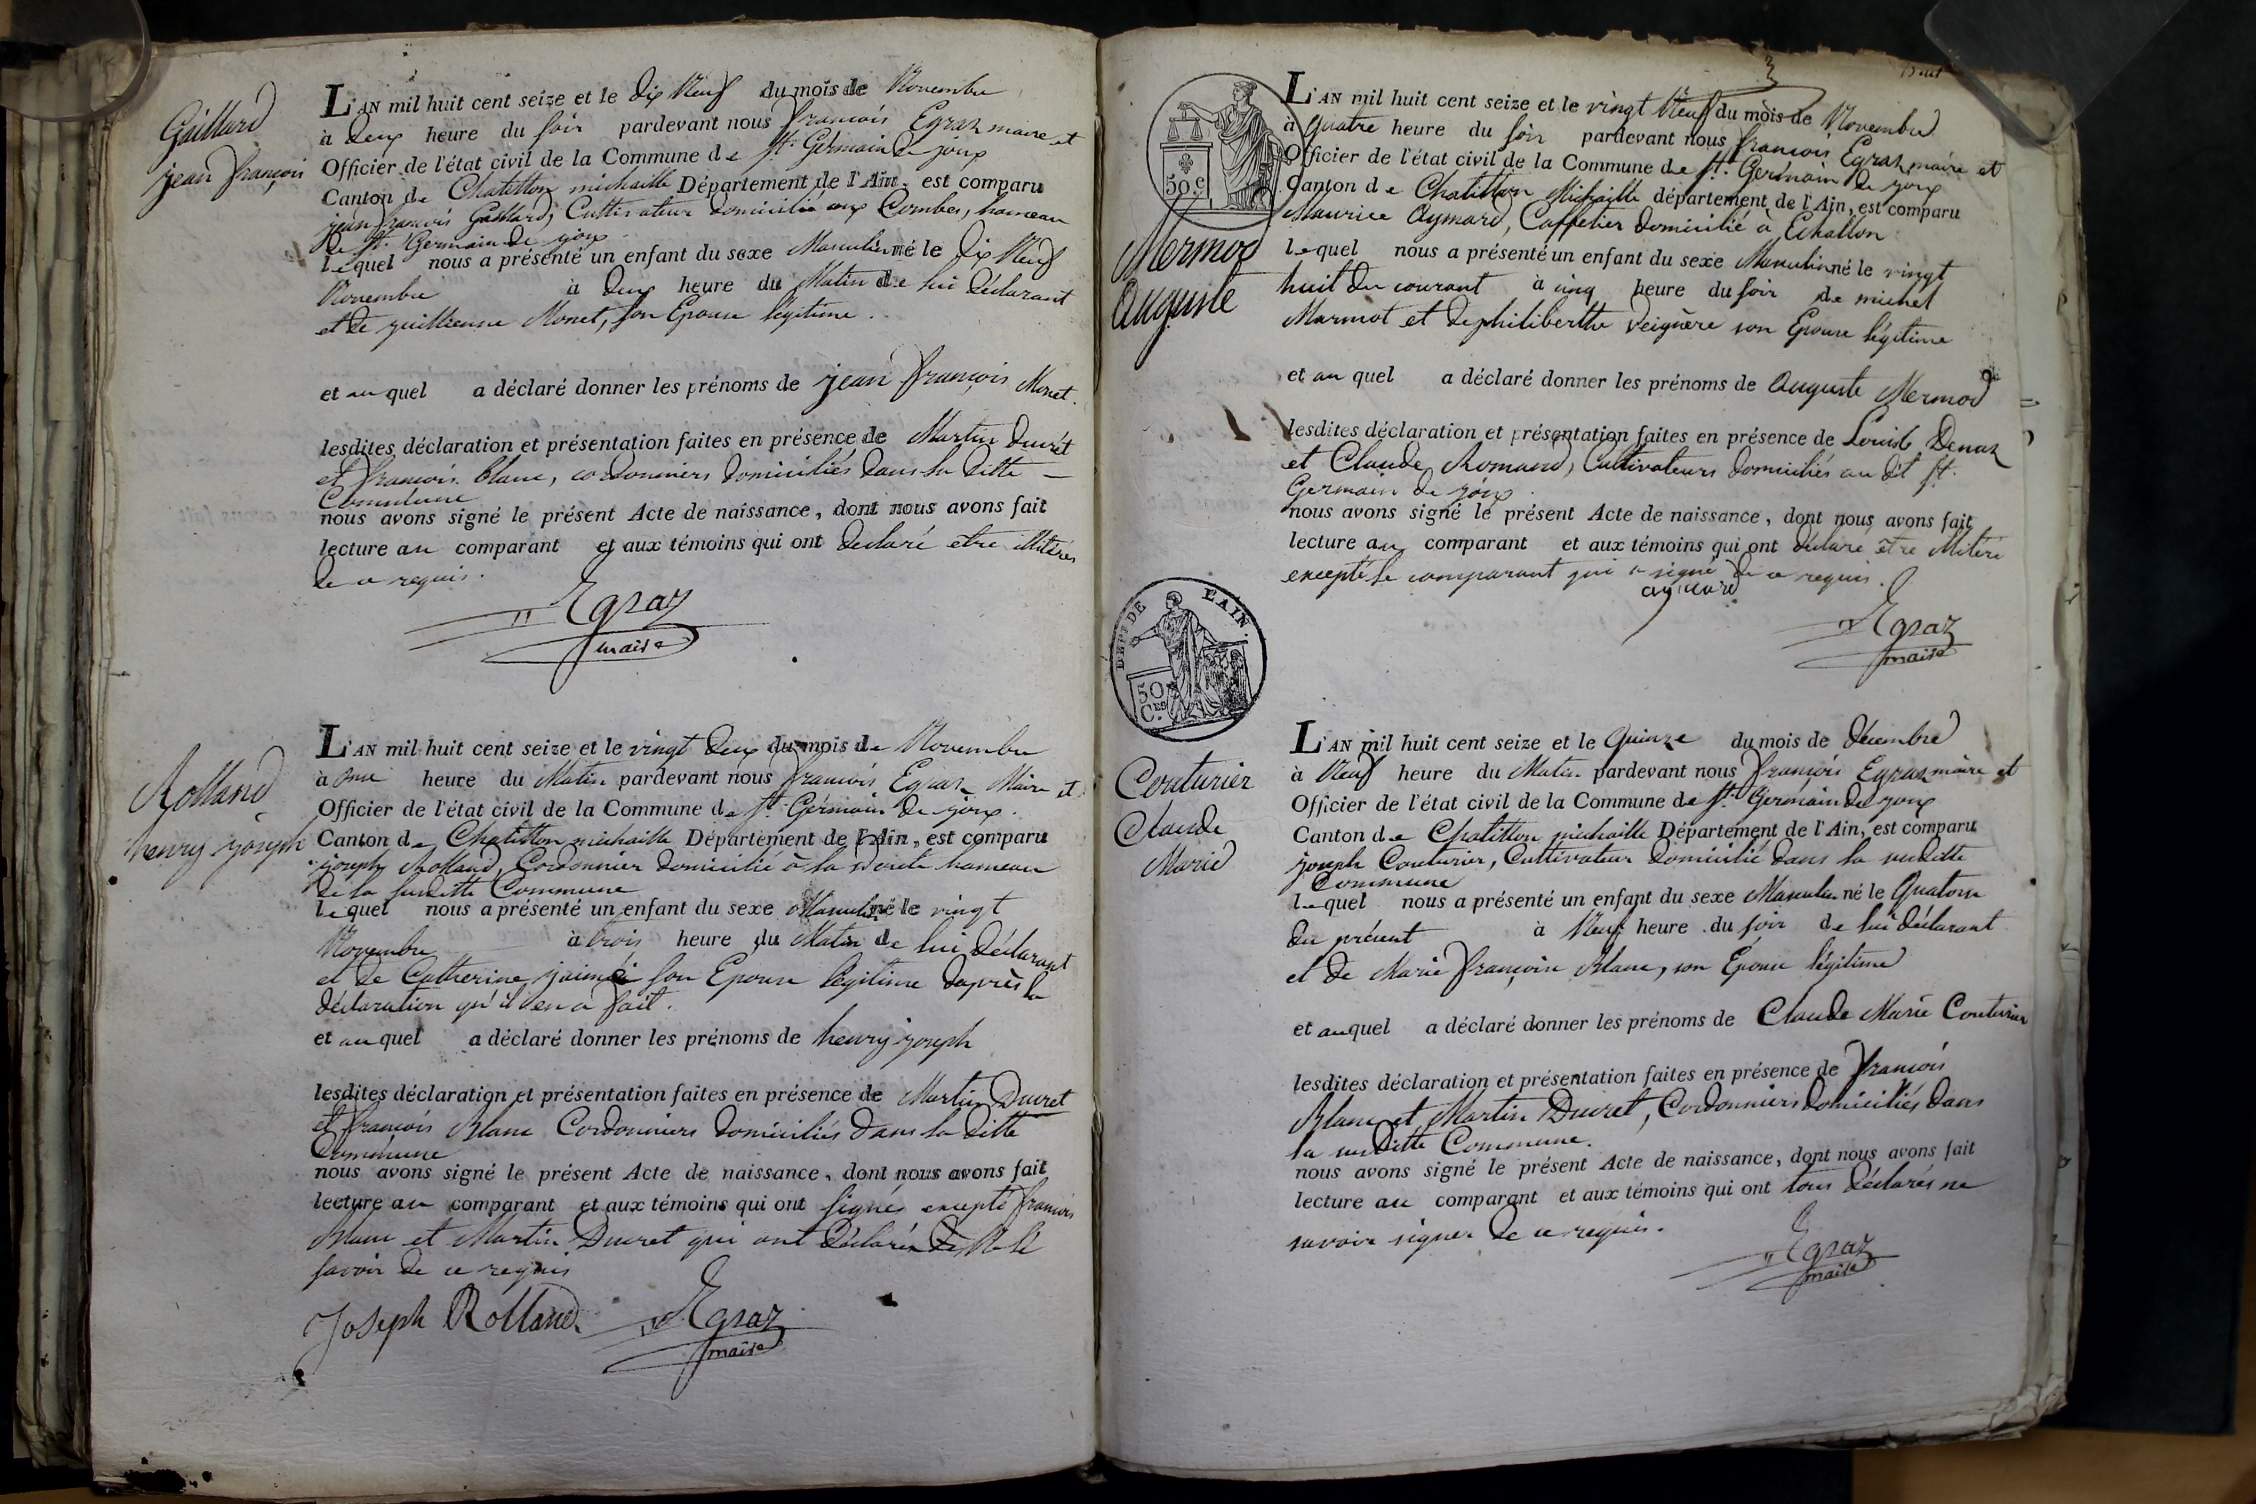 Gaillard
jean françois
L'AN mil huit cent seize et le dix Neuf du mois de Novembre
à deux heure du soir pardevant nous françois Egraz maire et
Officier de l'état civil de la Commune de St. Germain de joux
Canton de Chatillon michaille Département de l'Ain, est comparu
jean francois Gaillard, Cultivateur domicilié aux Combes, hameau
de St. Germain de joux
lequel nous a présenté un enfant du sexe Masculin né le dix Neuf
Novembre à deux heure du Matin de lui déclarant
et de guillienne Monet, son Epouse légitime.
et auquel a déclaré donner les prénoms de jean françois Monet.
lesdites déclaration et présentation faites en présence de Martin ducrêt
et françois blanc, cordonniers domiciliés dans la ditte
Commune
nous avons signé le présent Acte de naissance, dont nous avons fait
lecture au comparant et aux témoins qui ont déclaré etre illitérés
de ce requis.
Egraz
maire
Rolland
henry joseph
L'AN mil huit cent seize et le vingt deux du mois de Novembre
à onze heure du Matin pardevant nous françois Egraz Maire et
Officier de l'état civil de la Commune de St. Germain de joux.
Canton de Chatillon michaille Département de l'Ain, est comparu
joseph Rolland, Cordonnier domicilié à la hameau
de la susditte Commune
lequel nous a présenté un enfant du sexe Masculin né le vingt
Novembre à trois heure du Matin de lui déclarant
et de Catherine son Epouse légitime daprès la
déclaration qu'il en a fait.
et auquel a déclaré donner les prénoms de henry joseph
lesdites déclaration et présentation faites en présence de Martin Ducret
et françois Blanc Cordonniers domiciliés dans la ditte
Commune
nous avons signé le présent Acte de naissance, dont nous avons fait
lecture au comparant et aux témoins qui ont signés excepté françois
Blanc et Martin Ducret qui ont déclarés ne le
savoir de ce requis
Joseph Rolland
Egraz
maire
50.c
Mermod
Auguste
L'AN mil huit cent seize et le vingt Neuf du mois de Novembre
à quatre heure du soir pardevant nous françois Egraz maire et
Officier de l'état civil de la Commune de St. Germain de joux
Canton de Chatillon Michaille département de l'Ain, est comparu
Maurice Aymard, Caffetier domicilié à Echallon
lequel nous a présenté un enfant du sexe Masculin né le vingt
huit du courant à cinq heure du soir de michel
Marmot et de philiberthe Veignère son Epouse légitime
et au quel a déclaré donner les prénoms de Auguste Mermod
lesdites déclaration et présentation faites en présence de Louis Denaz
et Claude Romand, Cultivateurs domiciliés au dit St.
Germain de joux.
nous avons signé le présent Acte de naissance, dont nous avons fait
lecture au comparant et aux témoins qui ont déclaré etre illitéré
excepté le comparant qui a signé de ce requis.
aymard
Egraz
maire
DÉPT DE L'AIN.
50
C.ES
Couturier
Claude
Marie
L'AN mil huit cent seize et le Quinze du mois de décembre
à Neuf heure du Matin pardevant nous françois Egraz maire et
Officier de l'état civil de la Commune de St. Germain de joux
Canton de Chatillon michaille Département de l'Ain, est comparu
joseph Couturier, Cultivateur domicilié dans la susditte
Commune
lequel nous a présenté un enfant du sexe Masculin né le Quatorze
du présent à Neuf heure du soir de lui déclarant
et de Marie françoise Blanc, son Épouse légitime
et auquel a déclaré donner les prénoms de Claude Marie Couturier
lesdites déclaration et présentation faites en présence de françois
Blanc et Martin Ducret, Cordonniers domiciliés dans
la susditte Commune.
nous avons signé le présent Acte de naissance, dont nous avons fait
lecture au comparant et aux témoins qui ont tous déclarés ne
savoir signer de ce requis.
Egraz
maire